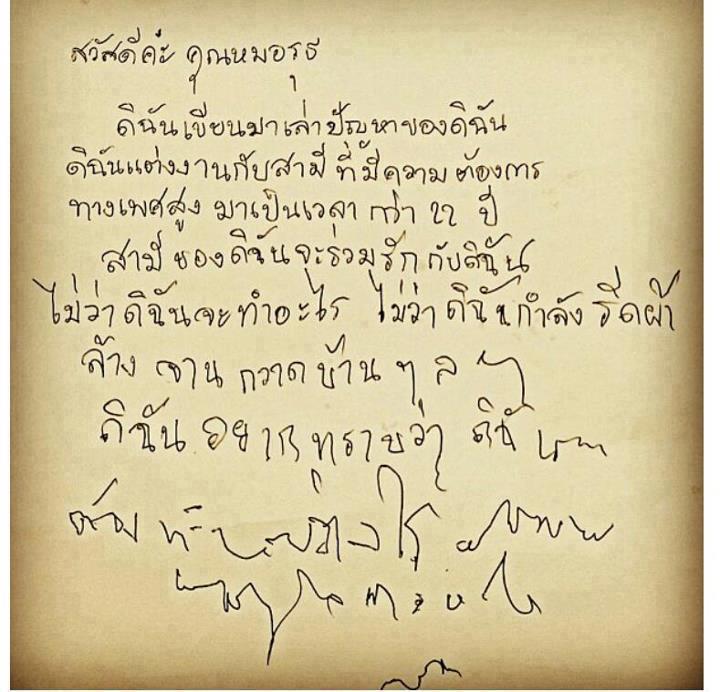 สวัสดีค่ะ คุณหมอรุธ
ดิฉันเขียนมาเล่าปัญหาของดิฉัน
ดิฉันแต่งงานกับสามีที่มีความต้องการ
ทางเพศสูง มาเป็นเวลา กว่า 22 ปี
สามีของดิฉันจะร่วมรักกับดิฉัน
ไม่ว่าดิฉันจะทำอะไร ไม่ว่าดิฉันกำลังรีดผ้า
ล้างจาน กวาดบ้าน ฯลฯ
ดิฉันอยากทราบว่า ดิฉัน
ต้อง ทำอย่างไร